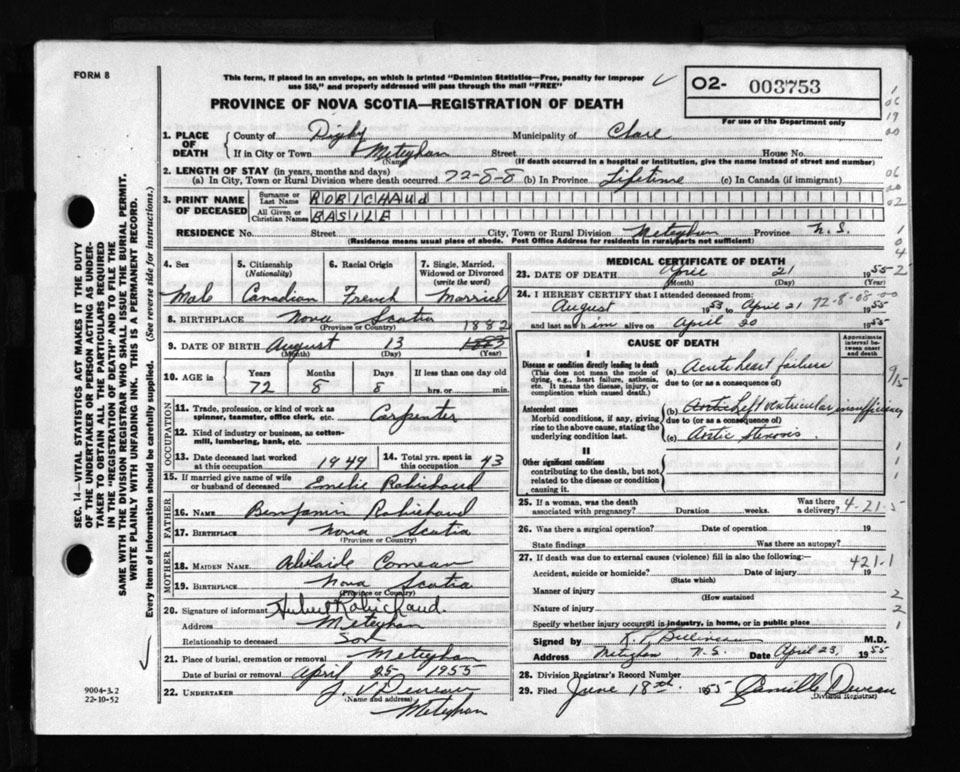 FORM 8
This form, if placed in an envelope, on which is printed "Dominion Statistics—Free, penalty for improper
use $50," and properly addressed will pass through the mail "FREE"
02- 003753
For use of the Department only
PROVINCE OF NOVA SCOTIA—REGISTRATION OF DEATH
1. PLACE OF DEATH
County of Digby Municipality of Clare
If in City or Town Meteghan Street House No.
(Name) (If death occurred in a hospital or institution, give the name instead of street and number)
2. LENGTH OF STAY (in years, months and days)
(a) In City, Town or Rural Division where death occurred 72-8-8 (b) In Province Lifetime (c) In Canada (if immigrant)
3. PRINT NAME OF DECEASED
Surname or Last Name ROBICHAUd
All Given or Christian Names BASILE
RESIDENCE No. Street City, Town or Rural Division Meteghan Province N.S.
(Residence means usual place of abode. Post Office Address for residents in rural parts not sufficient)
4. Sex 5. Citizenship (Nationality) 6. Racial Origin 7. Single, Married, Widowed or Divorced (write the word)
Male Canadian French Married
8. BIRTHPLACE Nova Scotia
(Province or Country)
1882
9. DATE OF BIRTH August 13 1883
(Month) (Day) (Year)
10. AGE in Years Months Days If less than one day old
72 8 8 hrs. or min.
OCCUPATION
11. Trade, profession, or kind of work as spinner, teamster, office clerk, etc. Carpenter
12. Kind of industry or business, as cotten-mill, lumbering, bank, etc.
13. Date deceased last worked at this occupation 1949 14. Total yrs. spent in this occupation 43
15. If married give name of wife or husband of deceased Emelie Robichaud
FATHER
16. NAME Benjamin Robichaud
17. BIRTHPLACE Nova Scotia
(Province or Country)
MOTHER
18. MAIDEN NAME Adelaide Comeau
19. BIRTHPLACE Nova Scotia
(Province or Country)
20. Signature of informant Hubert Robichaud.
Address Meteghan
Relationship to deceased Son
21. Place of burial, cremation or removal Meteghan
Date of burial or removal April 25 1955
22. UNDERTAKER J. V. Deveau
(Name and address)
Meteghan
MEDICAL CERTIFICATE OF DEATH
23. DATE OF DEATH April 21 1955
(Month) (Day)
24. I HEREBY CERTIFY that I attended deceased from:
August 1953 to April 21 1955
72-8-08-00
and last saw him alive on April 20 1955
CAUSE OF DEATH
Approximate interval between onset and death
I
Disease or condition directly leading to death
(This does not mean the mode of dying, e.g., heart failure, asthenia, etc. It means the disease, injury, or complication which caused death.)
(a) Acute heart failure
due to (or as a consequence of)
Antecedent causes
Morbid conditions, if any, giving rise to the above cause, stating the underlying condition last.
(b) Left ventricular insufficiency
due to (or as a consequence of)
(c) Aortic Stenosis
II
Other significant conditions
contributing to the death, but not related to the disease or condition causing it.
25. If a woman, was the death associated with pregnancy? Duration weeks. Was there a delivery?
4-21-5
26. Was there a surgical operation? Date of operation 19
State findings Was there an autopsy?
27. If death was due to external causes (violence) fill in also the following:—
421-1
Accident, suicide or homicide? Date of injury 19
(State which)
Manner of injury
(How sustained
Nature of injury
Specify whether injury occurred in industry, in home, or in public place
Signed by M.D.
Address Meteghan N.S. Date April 23, 1955
28. Division Registrar's Record Number
29. Filed June 18th 1955 Camille Deveau
(Division Registrar)
SEC. 14—VITAL STATISTICS ACT MAKES IT THE DUTY
OF THE UNDERTAKER OR PERSON ACTING AS UNDER-
TAKER TO OBTAIN ALL THE PARTICULARS REQUIRED
IN THE "REGISTRATION OF DEATH" AND TO FILE THE
SAME WITH THE DIVISION REGISTRAR WHO SHALL ISSUE THE BURIAL PERMIT.
WRITE PLAINLY WITH UNFADING INK. THIS IS A PERMANENT RECORD.
Every item of information should be carefully supplied. (See reverse side for instructions.)
9004-3.2
22-10-52